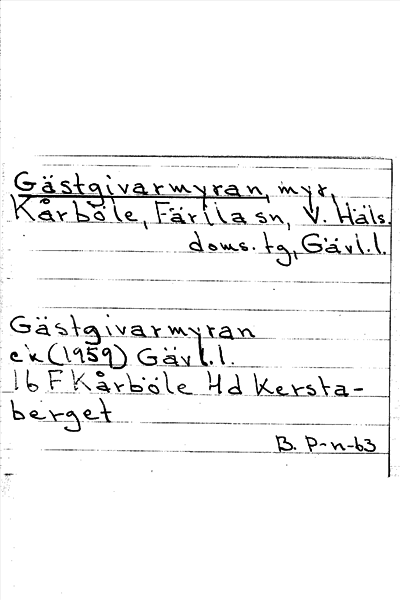 Gästgivarmyran, myr,
Kårböle, Färila sn, V. Häls.
doms. tg, Gävl.l.
Gästgivarmyran
ek (1959) Gävl.l.
16 F Kårböle 4d Kersta-
berget
B. P-n-63